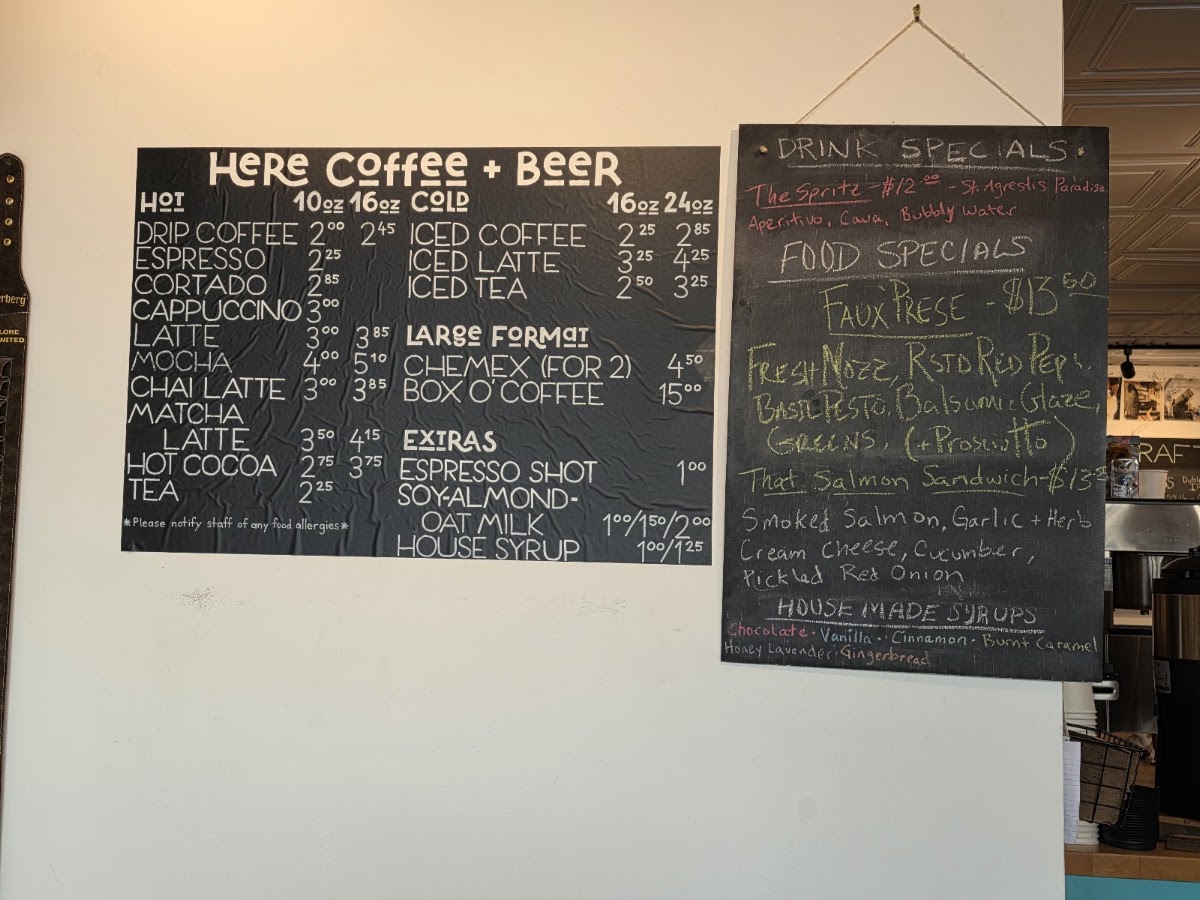 HERE COFFEE + BEER
HOT 10oz 16oz
DRIP COFFEE 2.00 2.45
ESPRESSO 2.25
CORTADO 2.85
CAPPUCCINO 3.00
LATTE 3.00 3.85
MOCHA 4.00 5.10
CHAI LATTE 3.00 3.85
MATCHA
LATTE 3.50 4.15
HOT COCOA 2.75 3.75
TEA 2.25
*Please notify staff of any food allergies*
COLD 16oz 24oz
ICED COFFEE 2.25 2.85
ICED LATTE 3.25 4.25
ICED TEA 2.50 3.25
LARGE FORMAT
CHEMEX (FOR 2) 4.50
BOX O'COFFEE 15.00
EXTRAS
ESPRESSO SHOT 1.00
SOY-ALMOND-
OAT MILK 1.00/1.50/2.00
HOUSE SYRUP 1.00/1.25
DRINK SPECIALS
The Spritz - $12.00 - St. Agrestis Paradiso
Aperitivo, Cava, Bubbly Water
FOOD SPECIALS
FAUX'PRESE - $13.50
FRESH MOZZ, RSTD RED PEP.,
BASIL PESTO, Balsamic Glaze,
GREENS, (+ Prosciutto)
That Salmon Sandwich - $13
Smoked Salmon, Garlic + Herb
Cream Cheese, Cucumber,
Pickled Red Onion
HOUSE MADE SYRUPS
Chocolate · Vanilla · Cinnamon · Burnt Caramel
Honey Lavender · Gingerbread